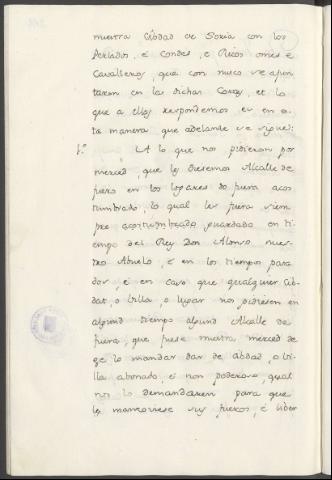 nuestra Cibdad de Soria con los
Perlados, é Condes, e Ricos omes e
Cavalleros, que con nusco se ayun
taron en las dichas Cortes, et lo
que a ellos respondemos es en es
ta manera, que adelante se sigue:
1.º A lo que nos pidieron por
merced, que les diesemos Alcalle de
fuero en los logares do fuera acos
tumbrado, lo qual les fuera siem
pre acostumbrado, guardado en ti-
empo del Rey Don Alonso nues-
tro Abuelo, é en los tiempos pasa
dos, é en caso que qualquier Cib
dat, o Villa, o lugar nos pidiesen en
algund tiempo algund Alcalle de
fuera, que fuese nuestra merced de
ge lo mandar dar de cibdad, o Vi
lla abonado, é non poderoso, qual
nos lo demandaren para que
les mantoviese sus fueros, é liber